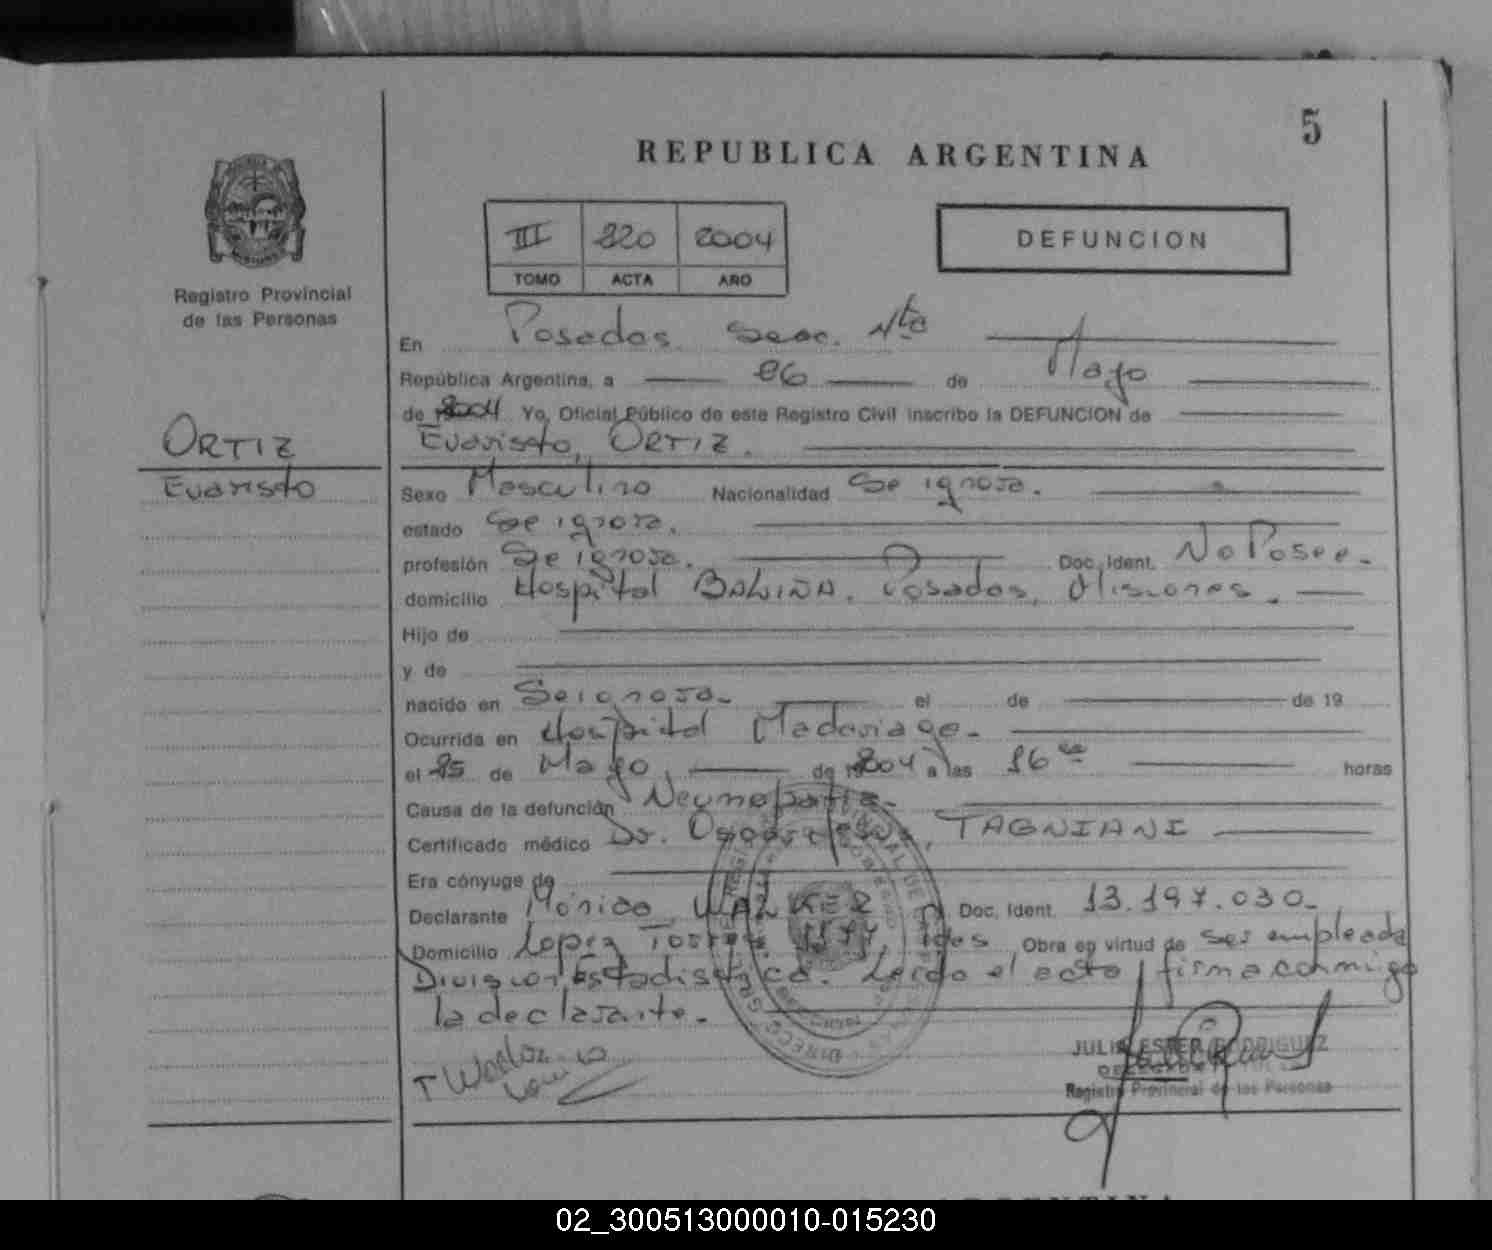 5
REPUBLICA ARGENTINA
III 220 2004
TOMO ACTA AÑO
DEFUNCION
Registro Provincial
de las Personas
En Posadas Secc. 4ta
República Argentina, a 26 de Mayo
de 2004 Yo, Oficial Público de este Registro Civil inscribo la DEFUNCION de
ORTIZ
Evaristo, ORTIZ.
Evaristo
Sexo Masculino Nacionalidad Se ignora.
estado Se ignora.
profesión Se ignora. Doc. Ident. No Posee.
domicilio Hospital BALIÑA. Posadas, Misiones.
Hijo de
y de
nacido en Se ignora. el de de 19
Ocurrida en Hospital Madariaga.
el 25 de Mayo de 2004 a las 16 horas
Causa de la defunción Neumopatía.
Certificado médico Dr. TAGNIANI
Era cónyuge de
Declarante Mónica WALKER Doc. Ident. 13.197.030.
Domicilio Lopez Torres Pdas Obra en virtud de ser empleada
División Estadística. Leído el acta firma conmigo
la declarante.
JULIA ESTER RODRIGUEZ
Registro Provincial de las Personas
ARGENTINA
02_300513000010-015230